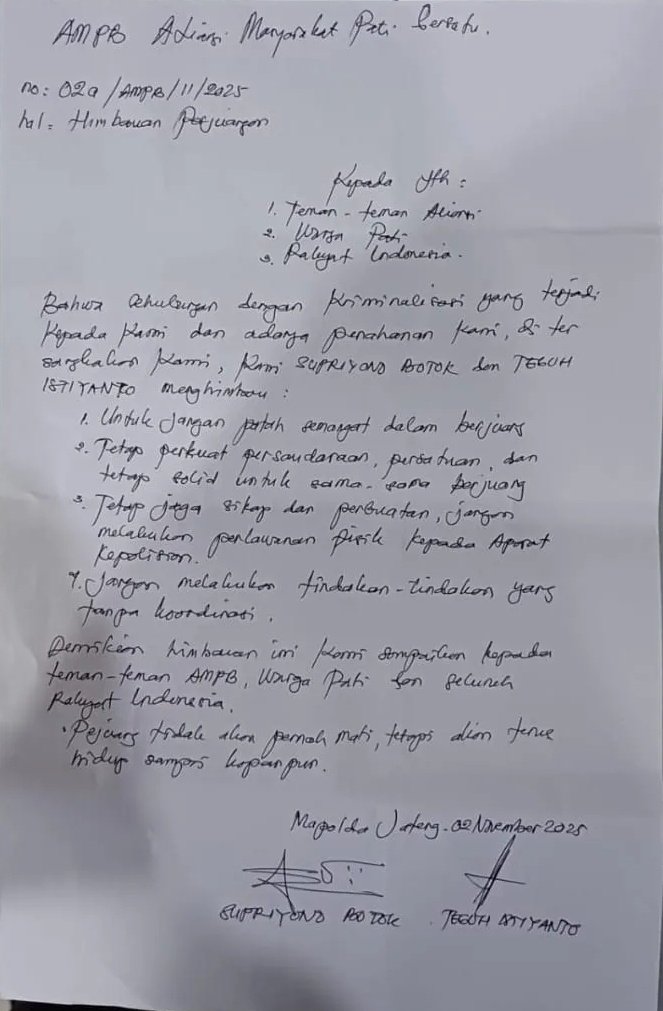 AMPB Aliansi Masyarakat Pati Bersatu.
no: 02a/AMPB/11/2025
hal: Himbauan Perjuangan
Kepada Yth :
1. Teman-teman Aliansi
2. Warga Pati
3. Rakyat Indonesia.
Bahwa sehubungan dengan kriminalisasi yang terjadi
kepada kami dan adanya penahanan kami, di ter
sangkakan kami, kami SUPRIYONO BOTOK dan TEGUH
ISTIYANTO menghimbau :
1. Untuk jangan patah semangat dalam berjuang
2. Tetap perkuat persaudaraan, persatuan, dan
tetap solid untuk sama-sama berjuang
3. Tetap jaga sikap dan perbuatan, jangan
melakukan perlawanan fisik kepada Aparat
kepolisian.
4. Jangan melakukan tindakan-tindakan yang
tanpa koordinasi.
Demikian himbauan ini kami sampaikan kepada
teman-teman AMPB, Warga Pati dan seluruh
Rakyat Indonesia.
"Pejuang tidak akan pernah mati, tetapi akan terus
hidup sampai kapanpun.
Mapolda Jateng, 02 November 2025
SUPRIYONO BOTOK TEGUH ISTIYANTO